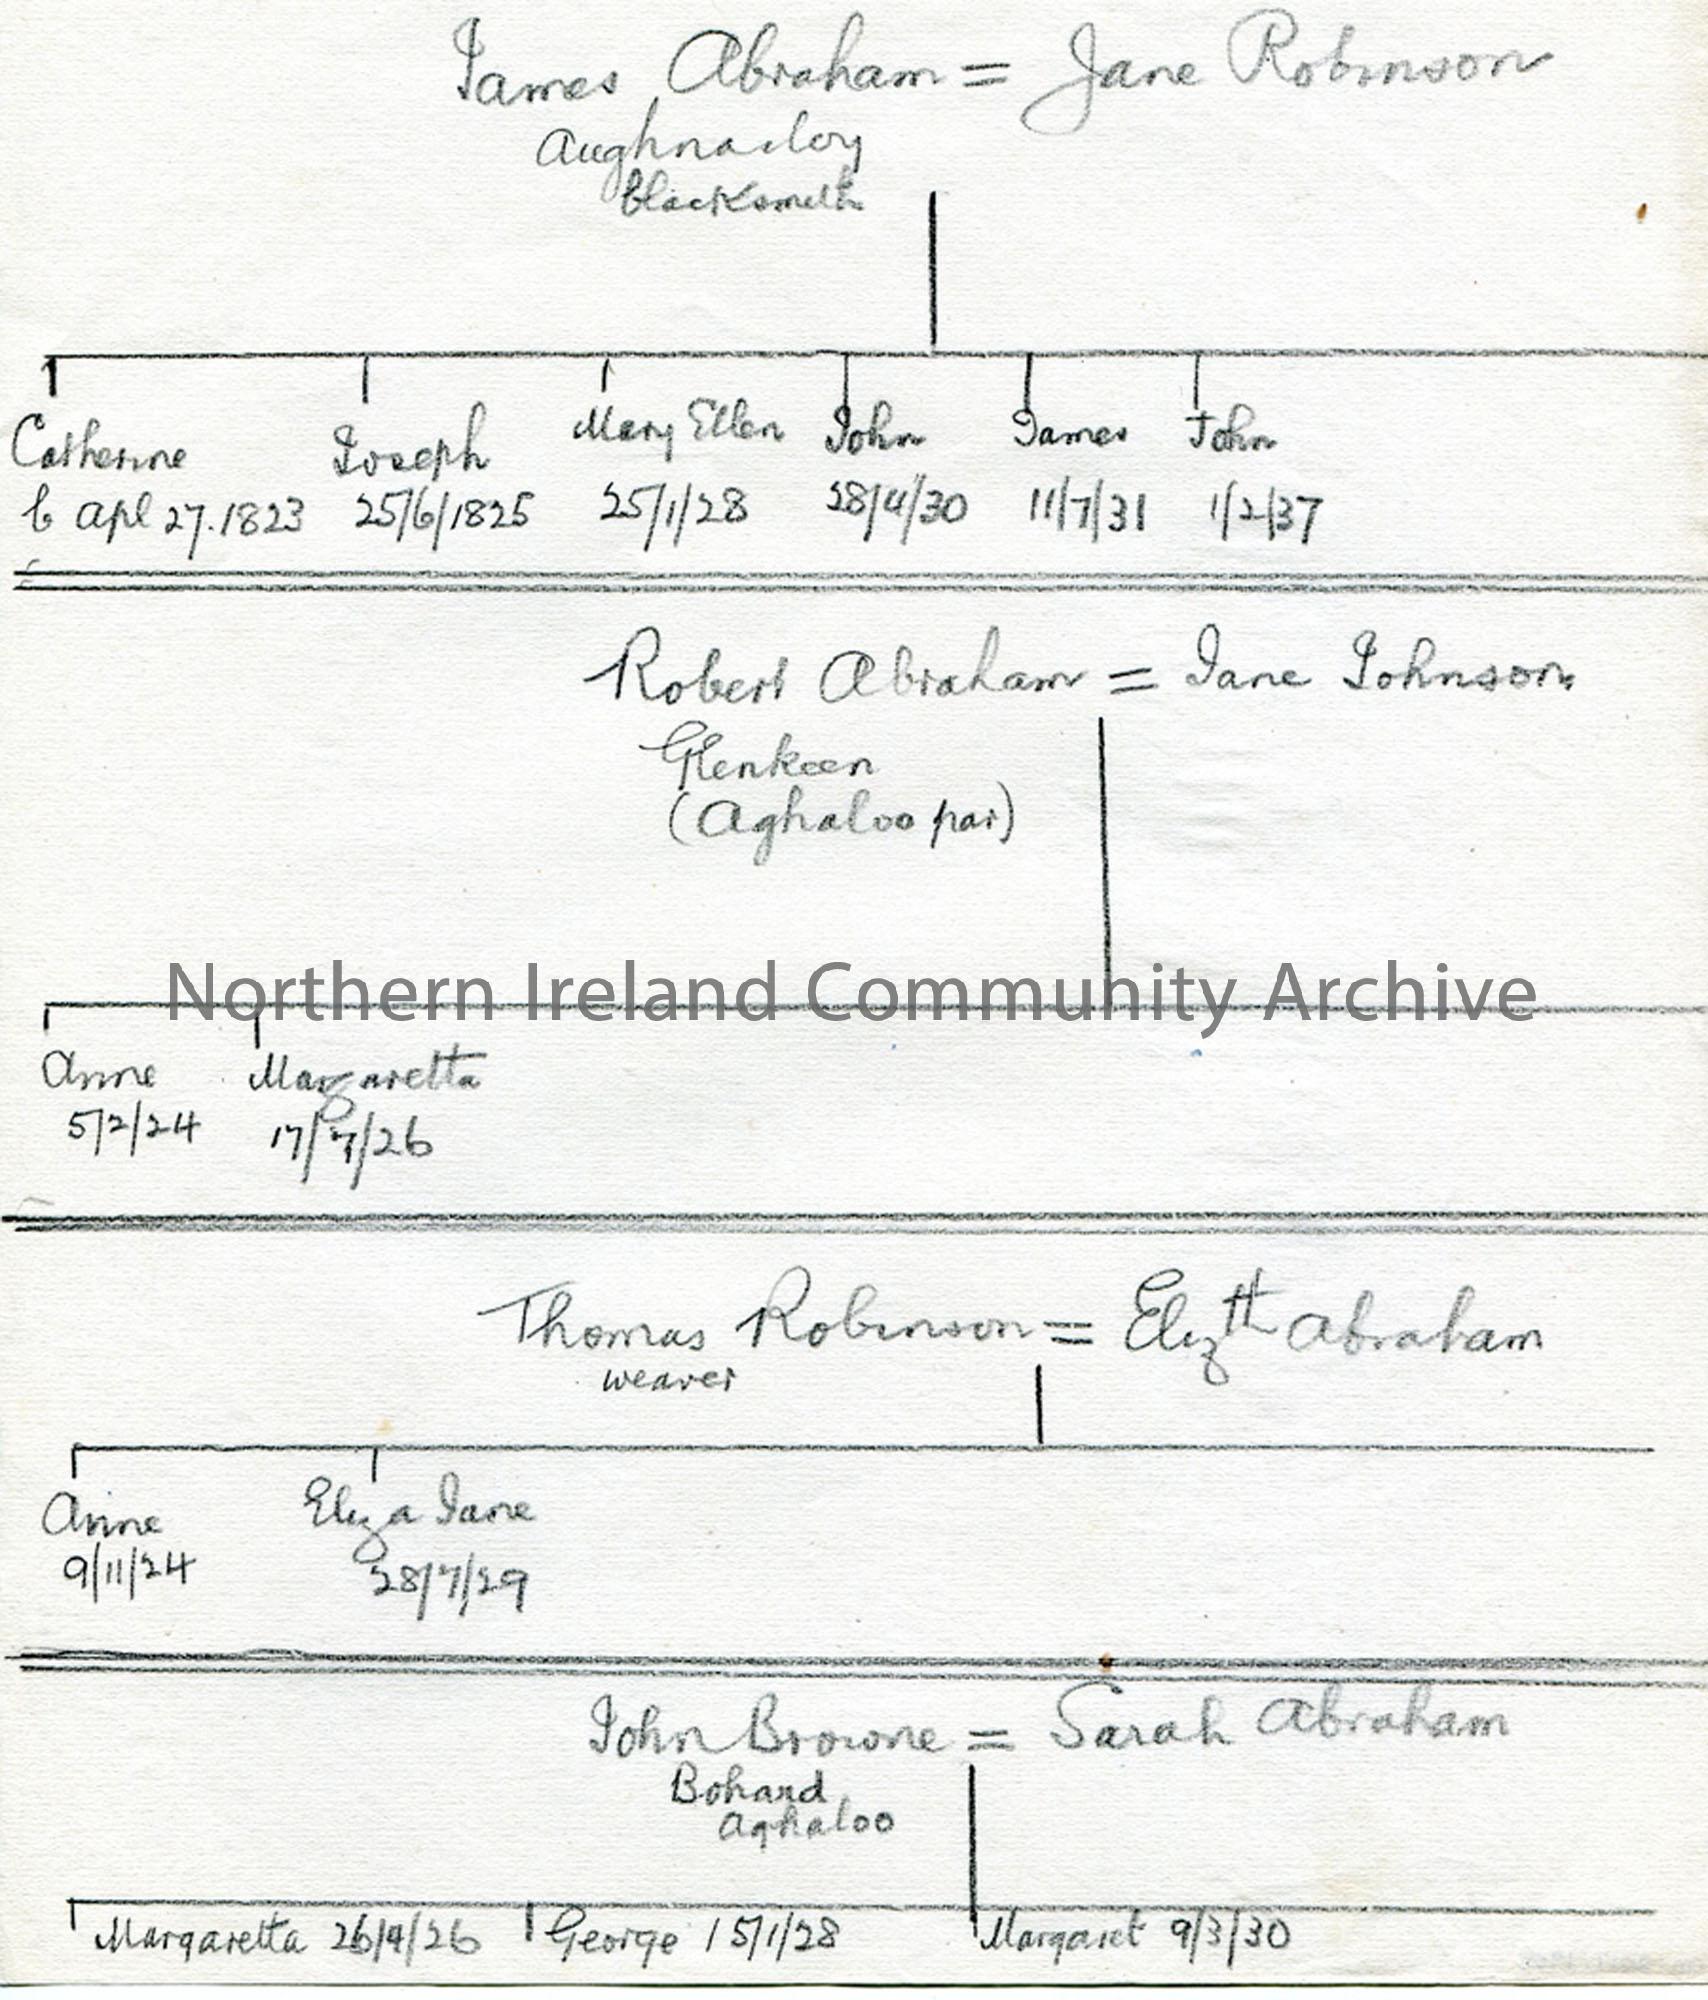 James Abraham = Jane Robinson
Aughnacloy
blacksmith
Catherine Joseph Mary Ellen John James John
b Apl 27.1823 25/6/1825 25/1/28 28/4/30 11/7/31 1/2/37
Robert Abraham = Jane Johnson
Glenkeen
(Aghaloo par)
Northern Ireland Community Archive
Anne Margaretta
5/2/24 17/7/26
Thomas Robinson = Elizth Abraham
weaver
Anne Eliza Jane
9/11/24 28/7/29
John Browne = Sarah Abraham
Bohard
Aghaloo
Margaretta 26/9/26 George 15/1/28 Margaret 9/3/30